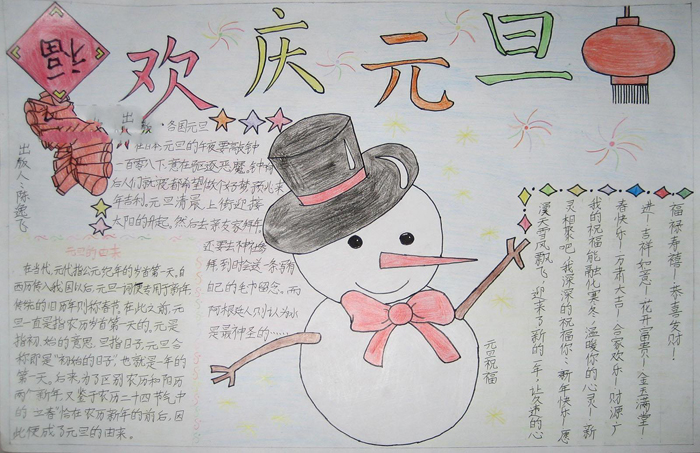 福
欢庆元旦
出版人：陈逸飞
各国元旦
日本元旦的午夜要敲钟
一百零八下，意在驱逐恶魔，钟
后人们就
年吉利，元旦清晨上街迎接
太阳的升起，然后去亲友家拜年
还要去神社
拜到时会送一条
自己的毛巾留念。而
阿根廷人则认为水
是最神圣的……
元旦的由来
在当代，元代指公元纪年的岁首第一天，自
西历传入我国以后，元旦一词便专用于新年
传统的旧历年则称春节。在此之前，元
旦一直是指农历岁首第一天的。元是
指初始的意思，旦指日子，元旦合
称即是“初始的日子”，也就是一年的
第一天。后来，为了区别农历和阳历
两个新年，又鉴于农历二十四节气中
的“立春”恰在农历新年的前后，因
此便成了元旦的由来。
元旦祝福
福禄寿禧！恭喜发财！
进！吉祥如意！花开富贵！金玉满堂！
春快乐！万事大吉！合家欢乐！财源广
我的祝福能融化寒冬，温暖你的心灵！新
灵相聚吧，我深深的祝福你：新年快乐！愿
漫天雪风飘飞，迎来了新的一年，让久违的心